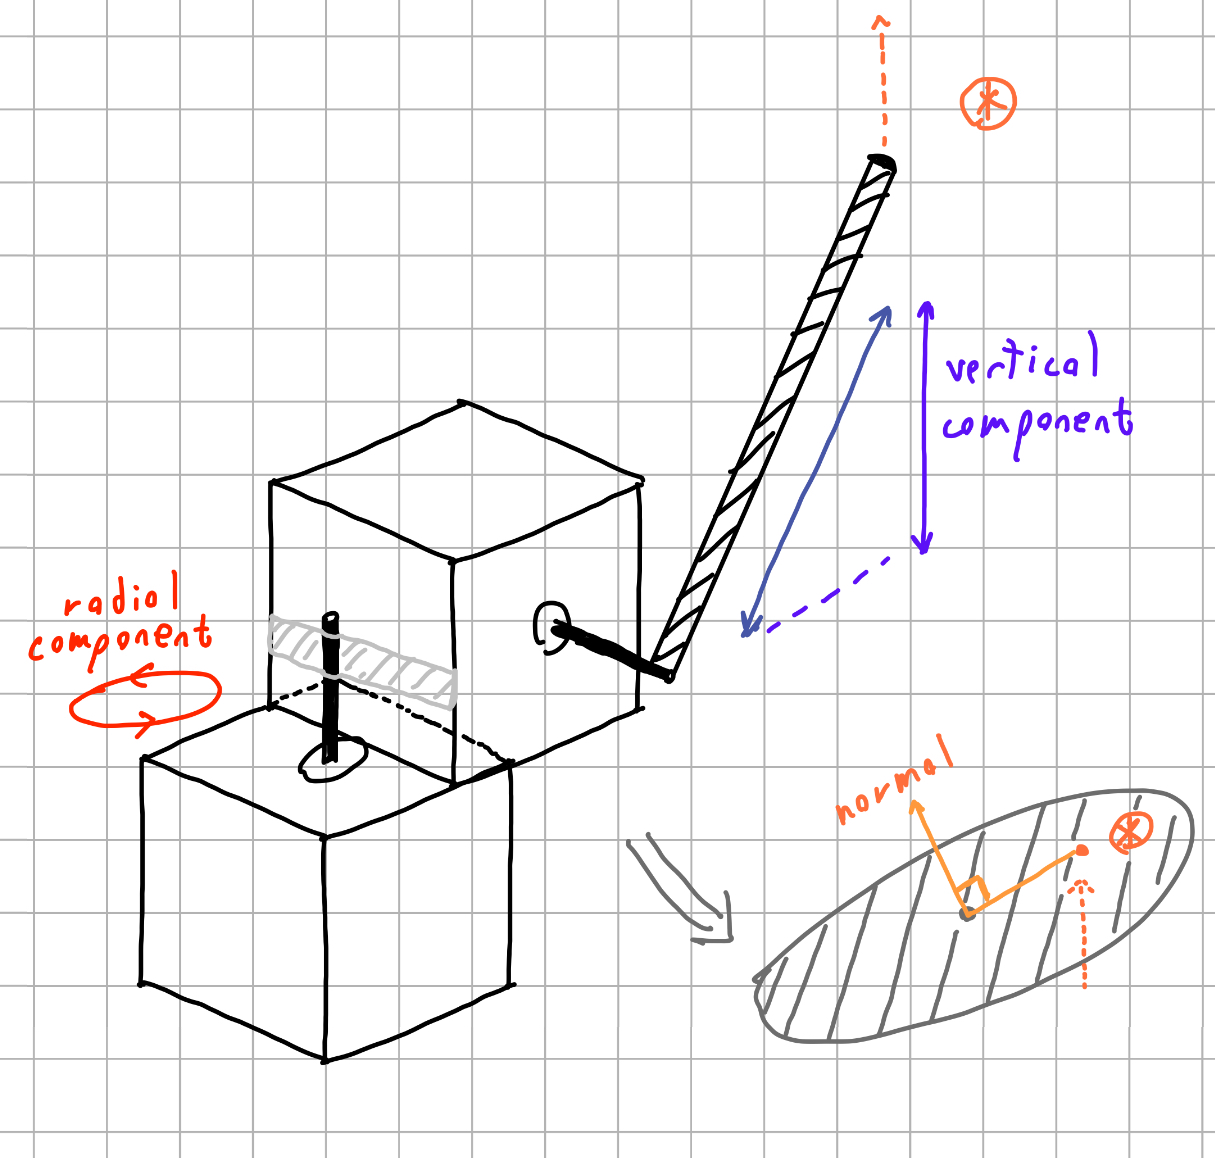 vertical
component
radial
component
normal